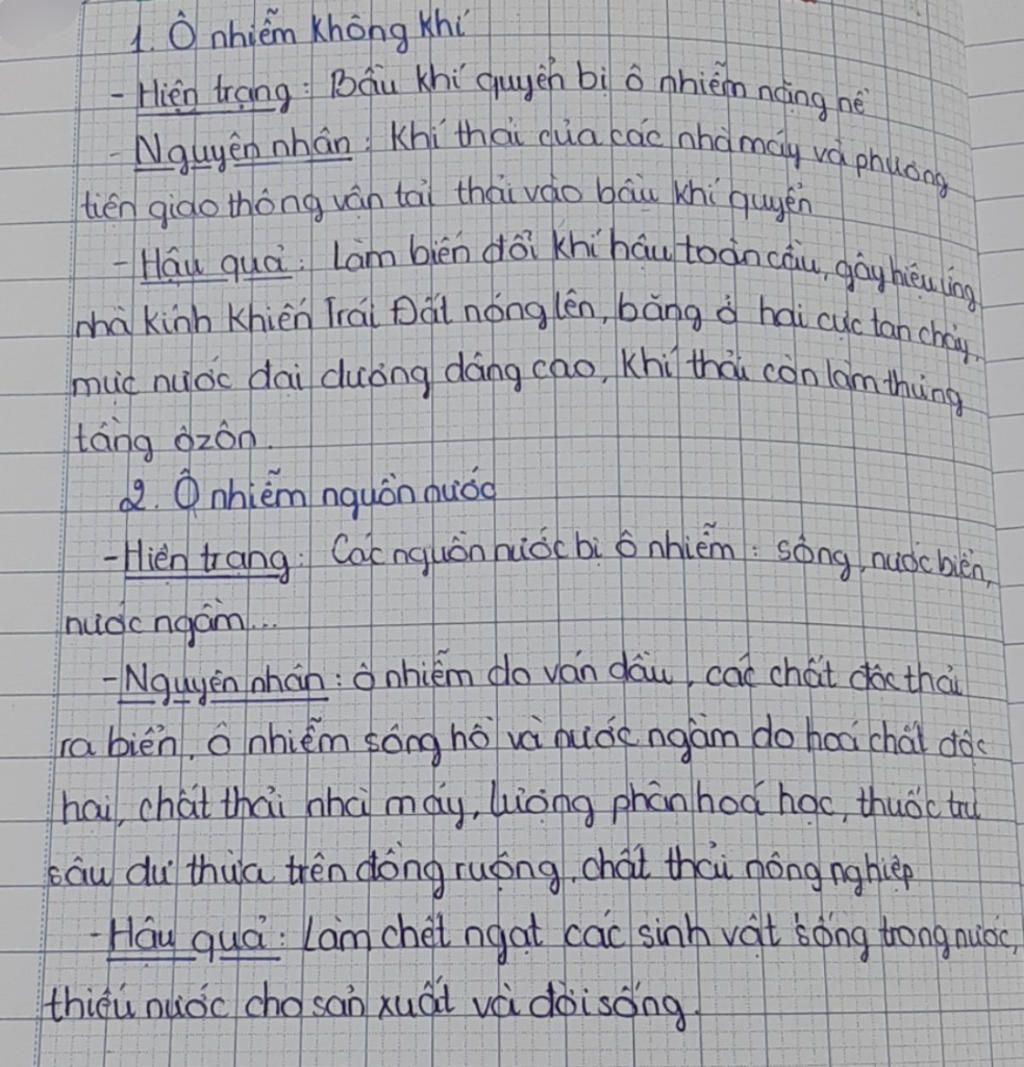 1. Ô nhiễm không khí
- Hiện trạng: Bầu khí quyển bị ô nhiễm nặng nề
- Nguyên nhân: Khí thải của các nhà máy và phương
tiện giao thông vận tải thải vào bầu khí quyển
- Hậu quả: Làm biến đổi khí hậu toàn cầu, gây hiệu ứng
nhà kính khiến Trái Đất nóng lên, băng ở hai cực tan chảy,
mực nước đại dương dâng cao, khí thải còn làm thủng
tầng ôzôn.
2. Ô nhiễm nguồn nước
- Hiện trạng: Các nguồn nước bị ô nhiễm: sông, nước biển,
nước ngầm...
- Nguyên nhân: ô nhiễm do ván dầu, các chất độc thải
ra biển, ô nhiễm sông hồ và nước ngầm do hoá chất độc
hại, chất thải nhà máy, lượng phân hoá học, thuốc trừ
sâu dư thừa trên đồng ruộng, chất thải nông nghiệp
- Hậu quả: Làm chết ngạt các sinh vật sống trong nước,
thiếu nước cho sản xuất và đời sống.